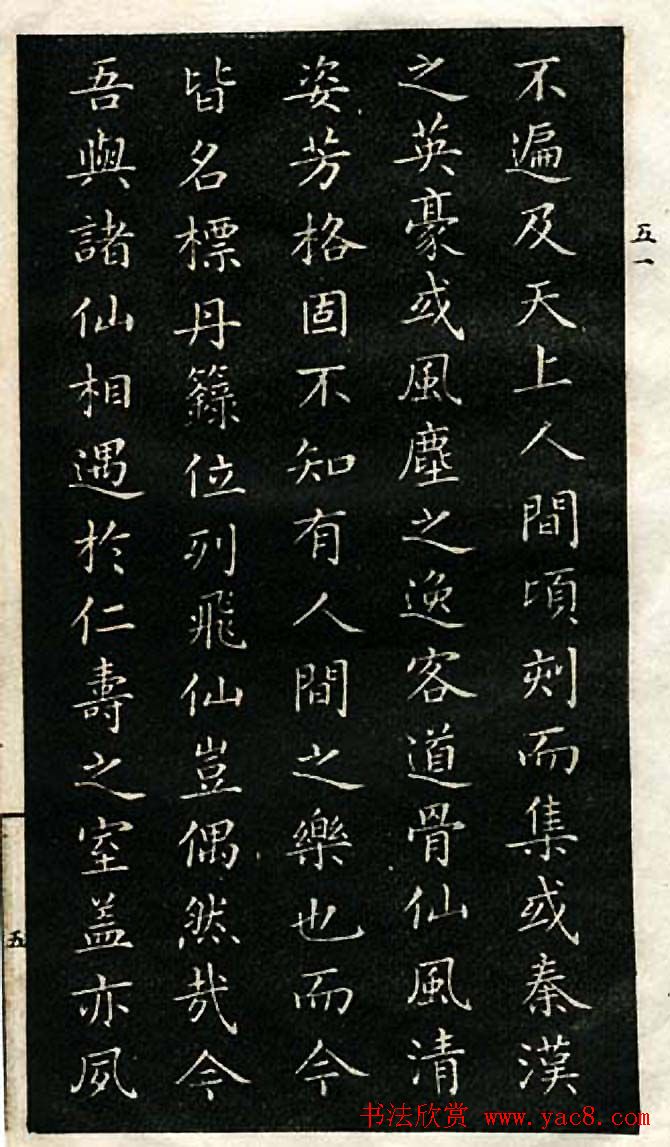 不遍及天上人間頃刻而集或秦漢
之英豪或風塵之逸客道骨仙風清
姿芳格固不知有人間之樂也而今
皆名標丹籙位列飛仙豈偶然哉今
吾與諸仙相遇於仁壽之室蓋亦夙
五一
五
书法欣赏 www.yac8.com